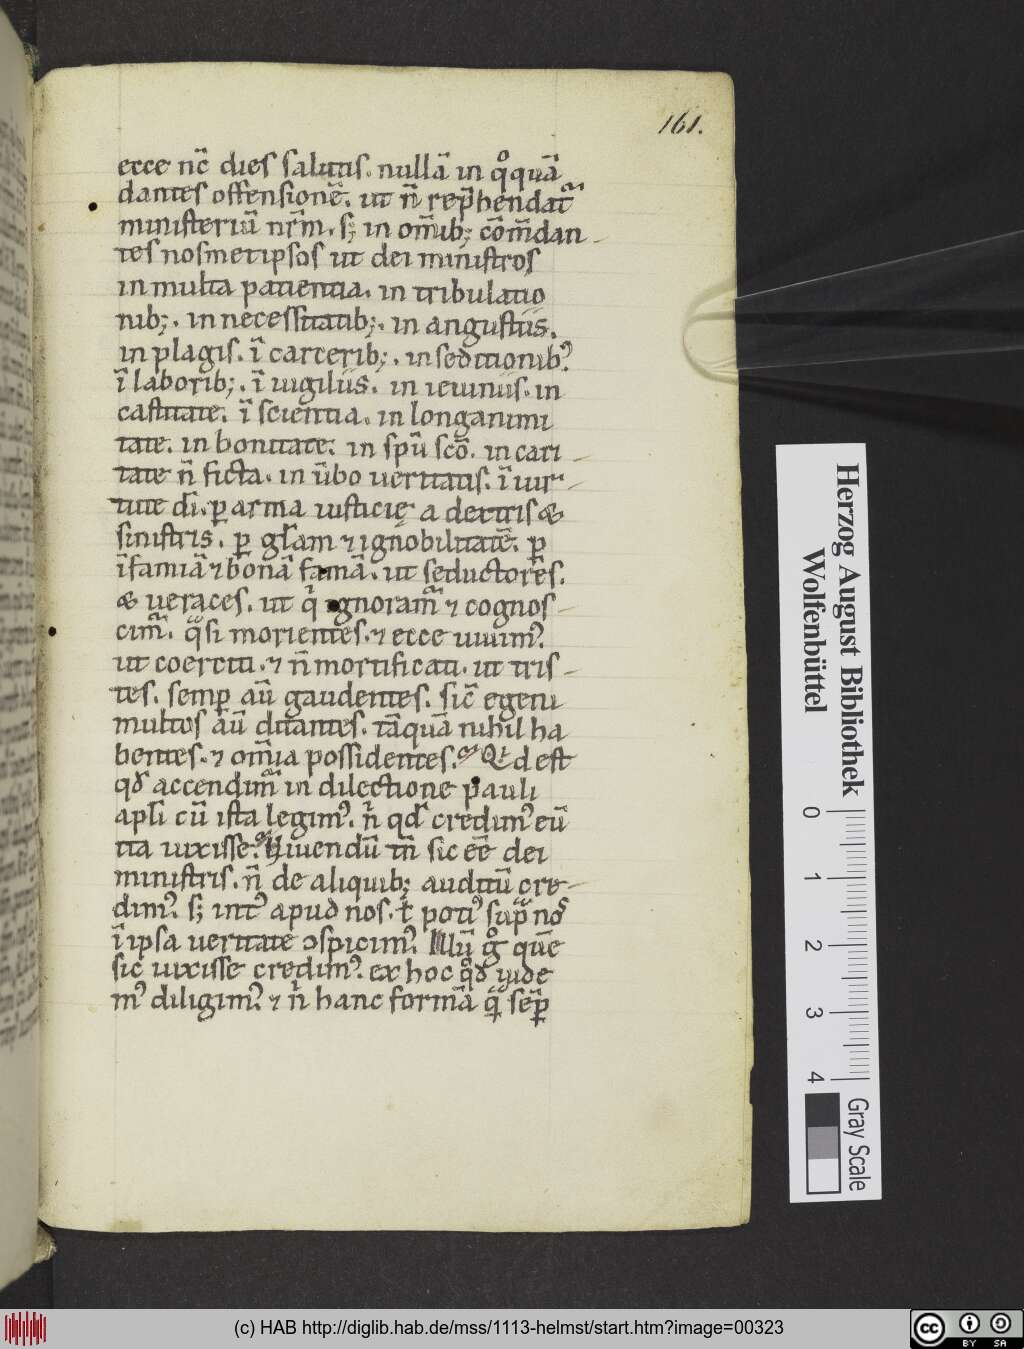 161.
ecce nc̄ dies salutis. nullā in qͦquā
dantes offensionē. ut n̄ rep̄hendat᷑
ministeriū nr̄m. s; in om̄ib; cōm̄dan
tes nosmetipsos ut dei ministros
in multa patientia. in tribulatio
nib;. in necessitatib;. in angustiis.
in plagis. ī carcerib;. in seditionib᾽.
ī laborib;. ī uigiliis. in ieiuniis. in
castitate. ī scientia. in longanimi
tate. in bonitate. in spū scō. in cari
tate n̄ ficta. in ūbo ueritatis. ī uir
tute dī. ꝑ arma iusticię a dextris &
sinistris. ꝑ gl̄am ⁊ ignobilitatē. ꝑ
īfamiā ⁊ bonā famā. ut seductores.
& ueraces. ut qͥ ignoram᷑ ⁊ cognos
cim᷑. qͣsi morientes. ⁊ ecce uiuim᾽.
ut coerciti. ⁊ n̄ mortificati. ut tris
tes. semꝑ aū gaudentes. sic̄ egeni
multos aū ditantes. tāquā nihil ha
bentes. ⁊ om̄ia possidentes. Qͥd est
qđ accendim᷑ in dilectione pauli
apl̄i cū ista legim᾽. n̄ qđ credim᾽ eū
ita uixisse? Viuendū tn̄ sic eē dei
ministris. n̄ de aliquib; auditū cre
dim᾽. s; int᾽ apud nos. ł poti᾽ sup̄ nos
ī ipsa ueritate ɔspicim᾽. Illū gͦ quē
sic uixisse credim᾽. ex hoc qđ uide
m᾽ diligim᾽. ⁊ n̄ hanc formā q̄ sēꝑ
Herzog August Bibliothek
Wolfenbüttel
0 1 2 3 4
Gray Scale
(c) HAB http://diglib.hab.de/mss/1113-helmst/start.htm?image=00323
cc BY SA